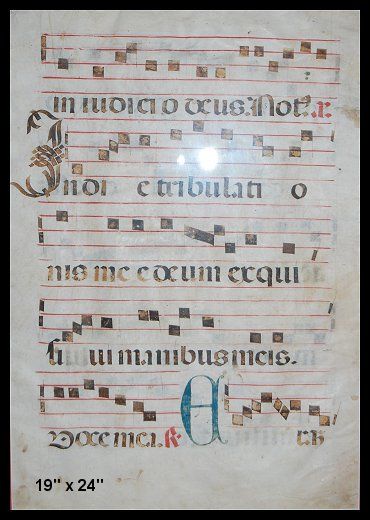 in iudici o deus. Not
In di e tribulati o
nis me e deum exqui
si ui manibus meis.
Uoce mea.
19" x 24"